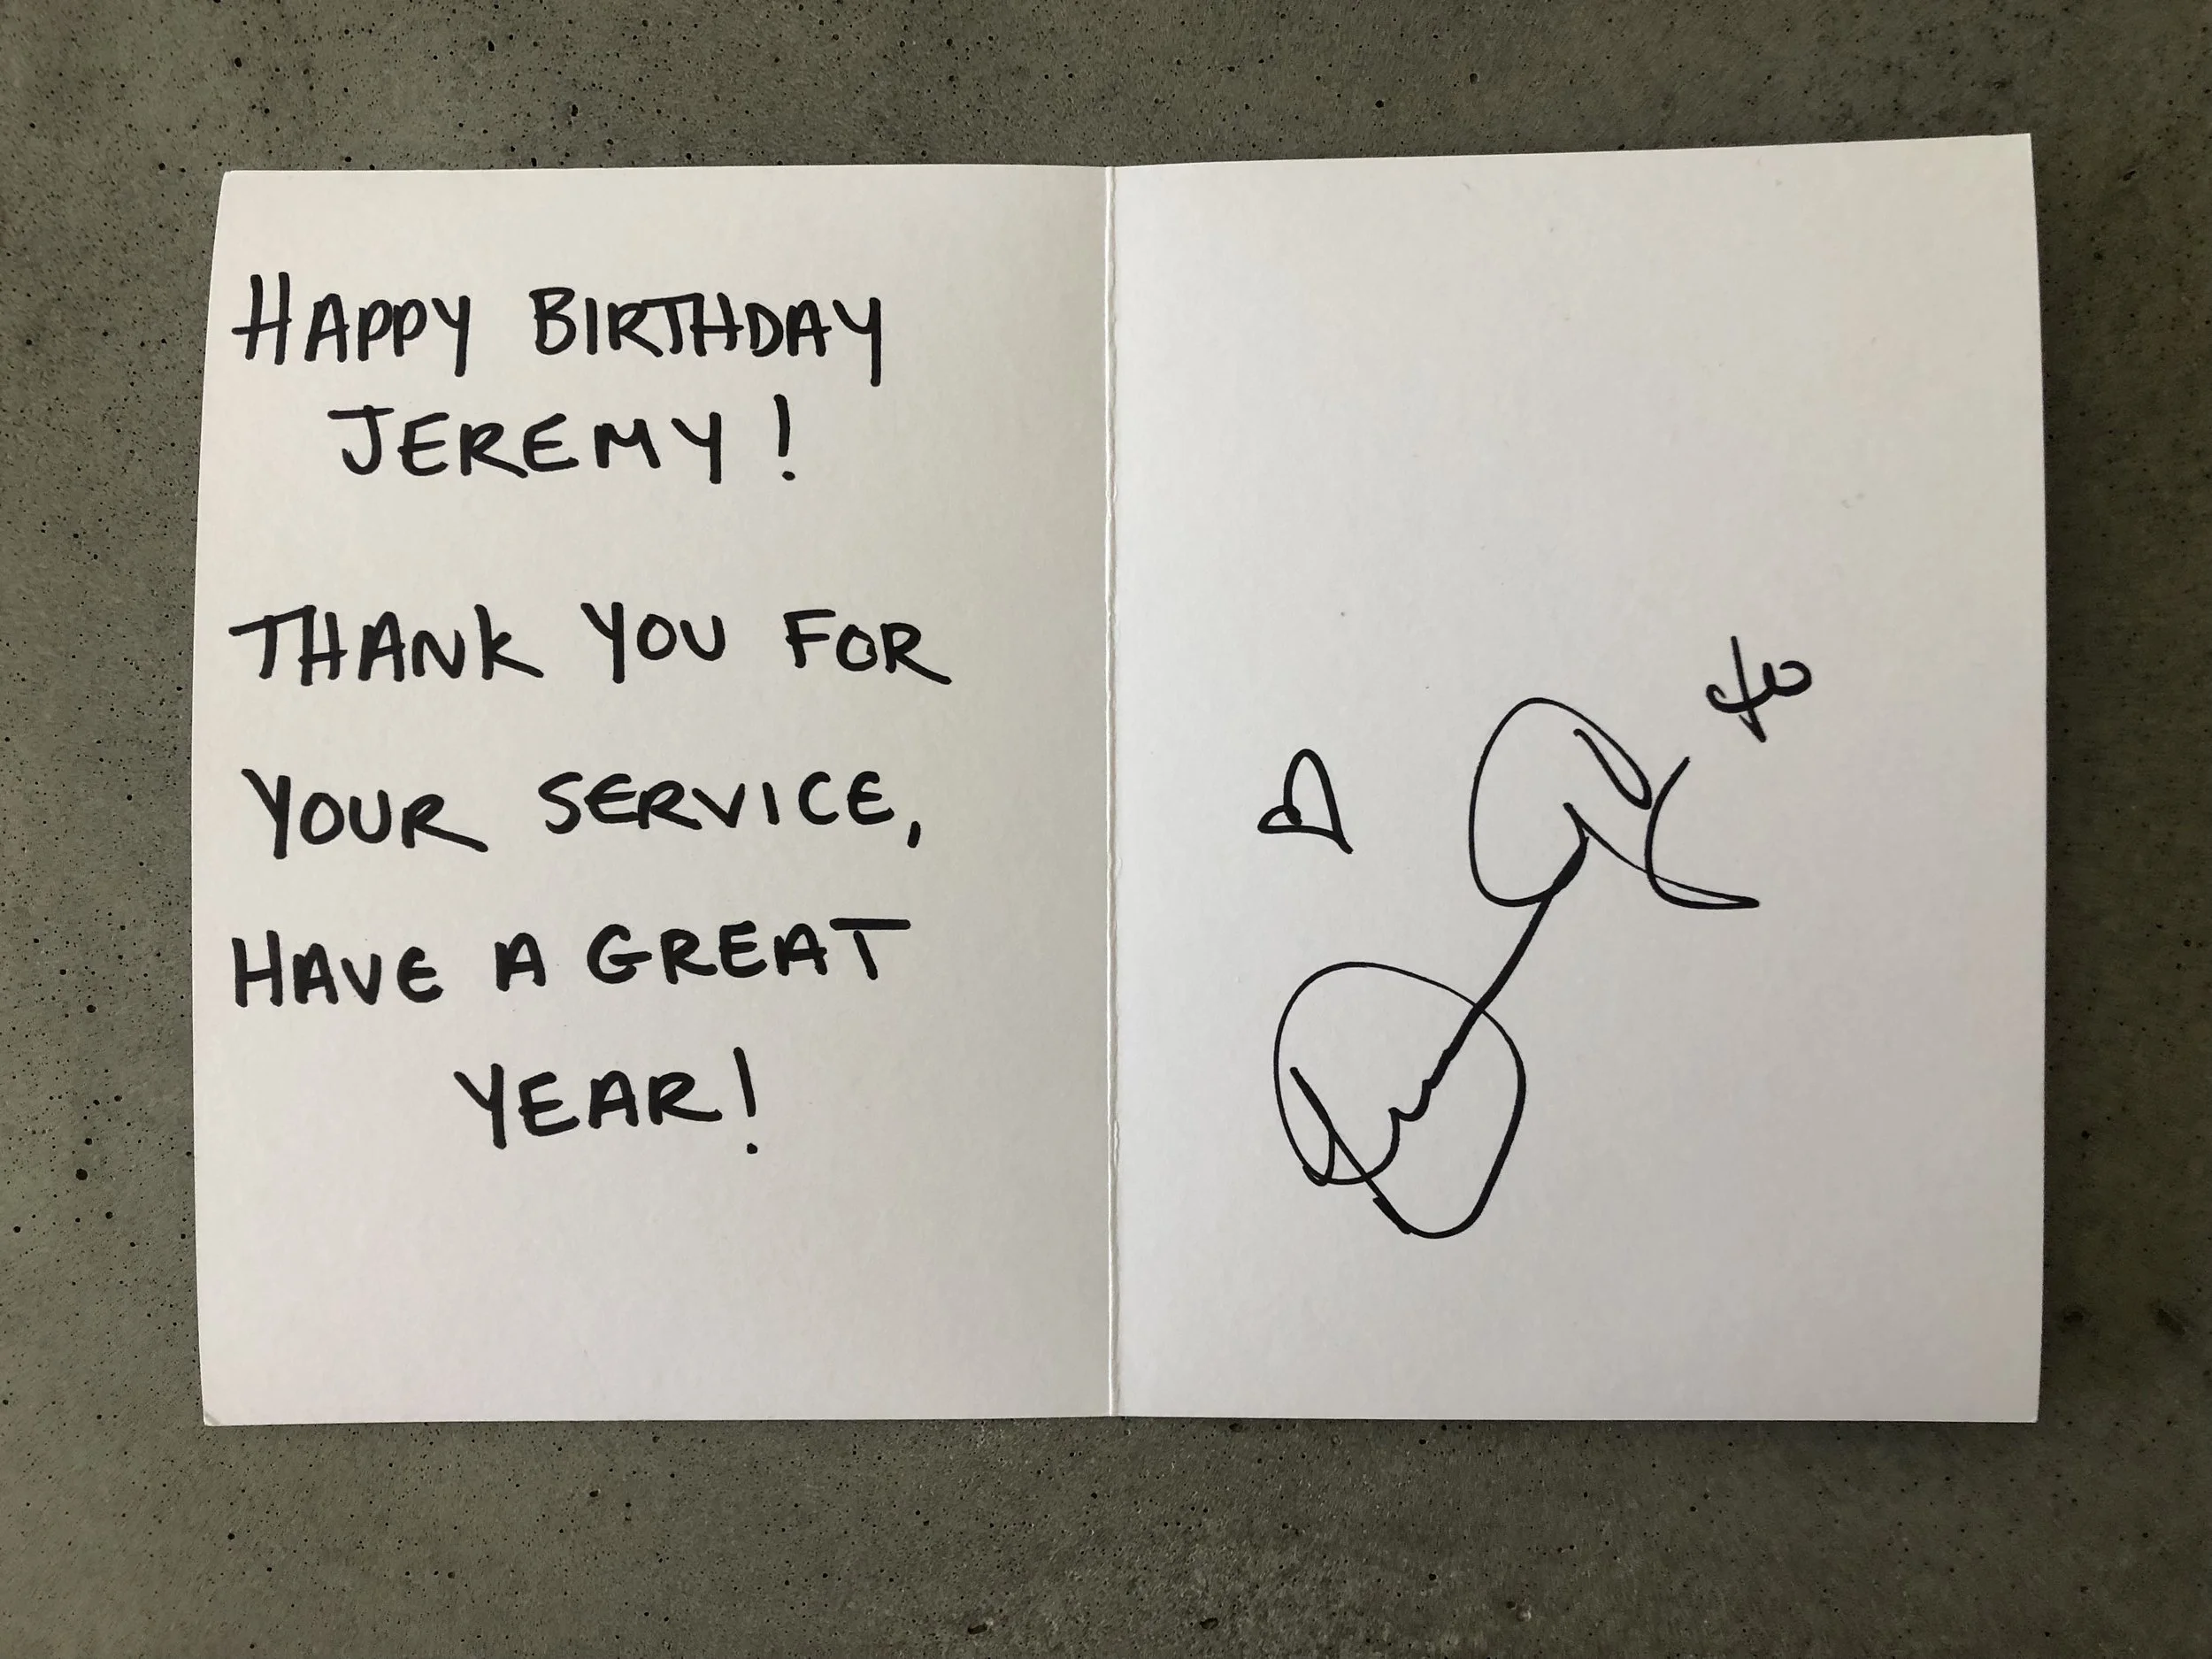 HAPPY BIRTHDAY
JEREMY!
THANK YOU FOR
YOUR SERVICE,
HAVE A GREAT
YEAR!